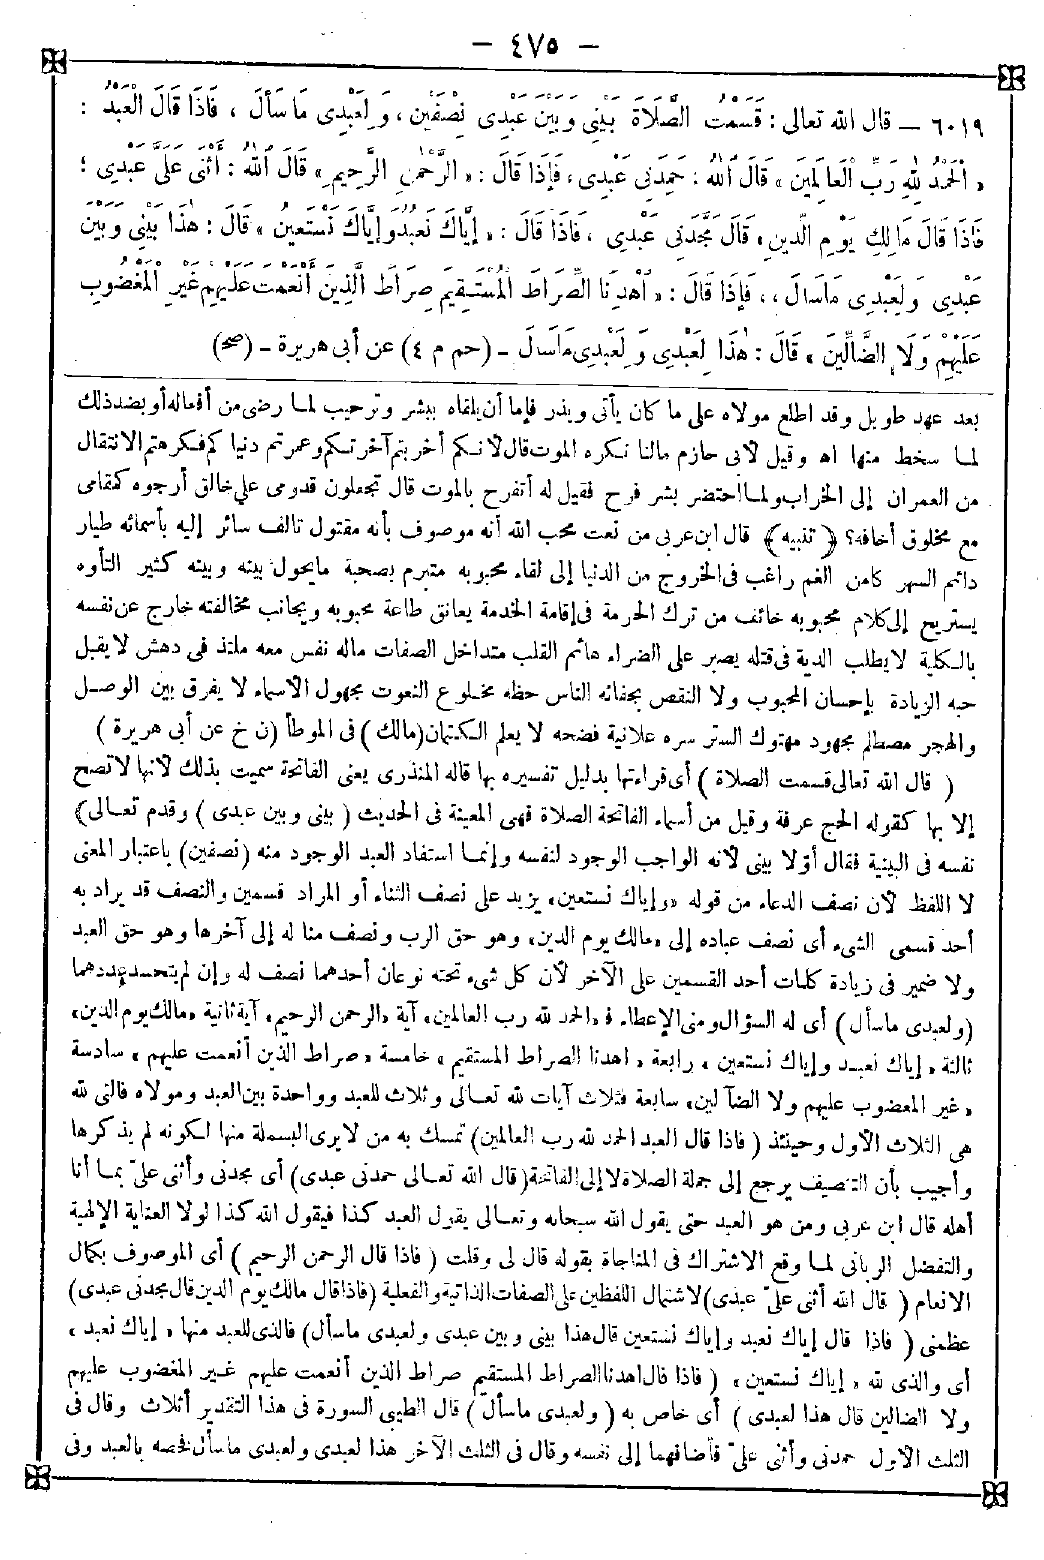 – ٤٧٥ –
٦٠١٩ – قال الله تعالى : قَسَمْتُ الصَّلَاةَ بَيْنِي وَبَيْنَ عَبْدِى نِصْفَيْنِ ، وَلِعَبْدِى مَا سَأَلَ ، فَاذَا قَالَ الْعَبْدُ :
« اَلْحَمْدُ لِلّٰهِ رَبِّ الْعَالَمِينَ » قَالَ اَللهُ : حَمِدَنِي عَبْدِى ، فَإِذَا قَالَ : « الرَّحْمٰنِ الرَّحِيمِ » قَالَ اَللهُ : أَثْنَى عَلَيَّ عَبْدِي ؛
فَاذَا قَالَ مَالِكِ يَوْمِ الدِّينِ ، قَالَ مَجَّدَنِي عَبْدِي ، فَاذَا قَالَ : « إِيَّاكَ نَعْبُدُ وَإِيَّاكَ نَسْتَعِينُ » قَالَ : هٰذَا بَيْنِي وَبَيْنَ
عَبْدِى وَلِعَبْدِى مَا سَأَلَ ، ، فَإِذَا قَالَ : « اَهْدِنَا الصِّرَاطَ الْمُسْتَقِيمَ صِرَاطَ الَّذِينَ أَنْعَمْتَ عَلَيْهِمْ غَيْرِ الْمَغْضُوبِ
عَلَيْهِمْ وَلَا الضَّالِّينَ » قَالَ : هٰذَا لِعَبْدِى وَلِعَبْدِى مَا سَأَلَ – (حم م ٤) عن أبى هريرة – (صح)
بعد عهد طويل وقد اطلع مولاه على ما كان يأتى ويذر فإما أن يلقاه ببشر وترحيب لما رضى من أفعاله أو بضد ذلك
لما سخط منها اه وقيل لابى حازم مالنا نكره الموت قال لانكم أخربتم آخرتكم وعمرتم دنياكم فكرهتم الانتقال
من العمران إلى الخراب ولما احتضر بشر فرح فقيل له أتفرح بالموت قال تجعلون قدومى على خالق أرجوه كمقامى
مع مخلوق أخافه؟ ﴿ تنبيه ﴾ قال ابن عربى من نعت محب الله أنه موصوف بأنه مقتول تالف سائر إليه بأسمائه طيار
دائم السهر كامن الغم راغب فى الخروج من الدنيا إلى لقاء محبوبه متبرم بصحبة مايحول بينه وبينه كثير التأوه
يستريح إلى كلام محبوبه خائف من ترك الحرمة فى إقامة الخدمة يعانق طاعة محبوبه ويجانب مخالفته خارج عن نفسه
بالكلية لايطلب الدية فى قتله يصبر على الضراء هائم القلب متداخل الصفات ماله نفس معه ملتذ فى دهش لايقبل
حبه الزيادة بإحسان المحبوب ولا النقص بجفائه الناس حظه مخلوع النعوت مجهول الاسماء لا يفرق بين الوصل
والهجر مصطلم مجهود مهتوك الستر سره علانية فضحه لا يعلم الكتمان (مالك) فى الموطأ (ن خ عن أبى هريرة )
( قال الله تعالى قسمت الصلاة ) أى قراءتها بدليل تفسيره بها قاله المنذرى يعنى الفاتحة سميت بذلك لأنها لاتصح
إلا بها كقوله الحج عرفة وقيل من أسماء الفاتحة الصلاة فهى المعينة فى الحديث ( بينى وبين عبدى ) وقدم تعالى
نفسه فى البينية فقال أولا بينى لأنه الواجب الوجود لنفسه وإنما استفاد العبد الوجود منه (نصفين) باعتبار المعنى
لا اللفظ لأن نصف الدعاء من قوله «وإياك نستعين» يزيد على نصف الثناء أو المراد قسمين والنصف قد يراد به
أحد قسمى الشىء أى نصف عباده إلى «مالك يوم الدين» وهو حق الرب ونصف منا له إلى آخرها وهو حق العبد
ولا ضير فى زيادة كلمات أحد القسمين على الآخر لأن كل شىء تحته نوعان أحدهما نصف له وإن لم يتحد عددهما
(ولعبدى ماسأل ) أى له السؤال ومنى الإعطاء فـ «الحمد لله رب العالمين» آية «الرحمن الرحيم» آية ثانية «مالك يوم الدين»
ثالثة « إياك نعبد وإياك نستعين » رابعة « اهدنا الصراط المستقيم » خامسة « صراط الذين أنعمت عليهم » سادسة
« غير المغضوب عليهم ولا الضآلين» سابعة فثلاث آيات لله تعالى وثلاث للعبد وواحدة بين العبد ومولاه فالتى لله
هى الثلاث الأول وحينئذ ( فاذا قال العبد الحمد لله رب العالمين) تمسك به من لايرى البسملة منها لكونه لم يذكرها
وأجيب بأن التنصيف يرجع إلى جملة الصلاة لا إلى الفاتحة (قال الله تعالى حمدنى عبدى) أى مجدنى وأثنى علىّ بما أنا
أهله قال ابن عربى ومن هو العبد حتى يقول الله سبحانه وتعالى يقول العبد كذا فيقول الله كذا لولا العناية الإلهية
والتفضل الربانى لما وقع الاشتراك فى المناجاة بقوله قال لى وقلت ( فاذا قال الرحمن الرحيم ) أى الموصوف بكمال
الانعام ( قال الله أثنى علىّ عبدى) لاشتمال اللفظين على الصفات الذاتية والفعلية (فاذا قال مالك يوم الدين قال مجدنى عبدى)
عظمنى ( فاذا قال إياك نعبد وإياك نستعين قال هذا بينى وبين عبدى ولعبدى ماسأل) فالذى للعبد منها « إياك نعبد »
أى والذى لله « إياك نستعين » ( فاذا قال اهدنا الصراط المستقيم صراط الذين أنعمت عليهم غير المغضوب عليهم
ولا الضالين قال هذا لعبدى ) أى خاص به ( ولعبدى ماسأل ) قال الطيبى السورة فى هذا التقدير أثلاث وقال فى
الثلث الأول حمدنى وأثنى علىّ فأضافهما إلى نفسه وقال فى الثلث الآخر هذا لعبدى ولعبدى ماسأل فخصه بالعبد وفى